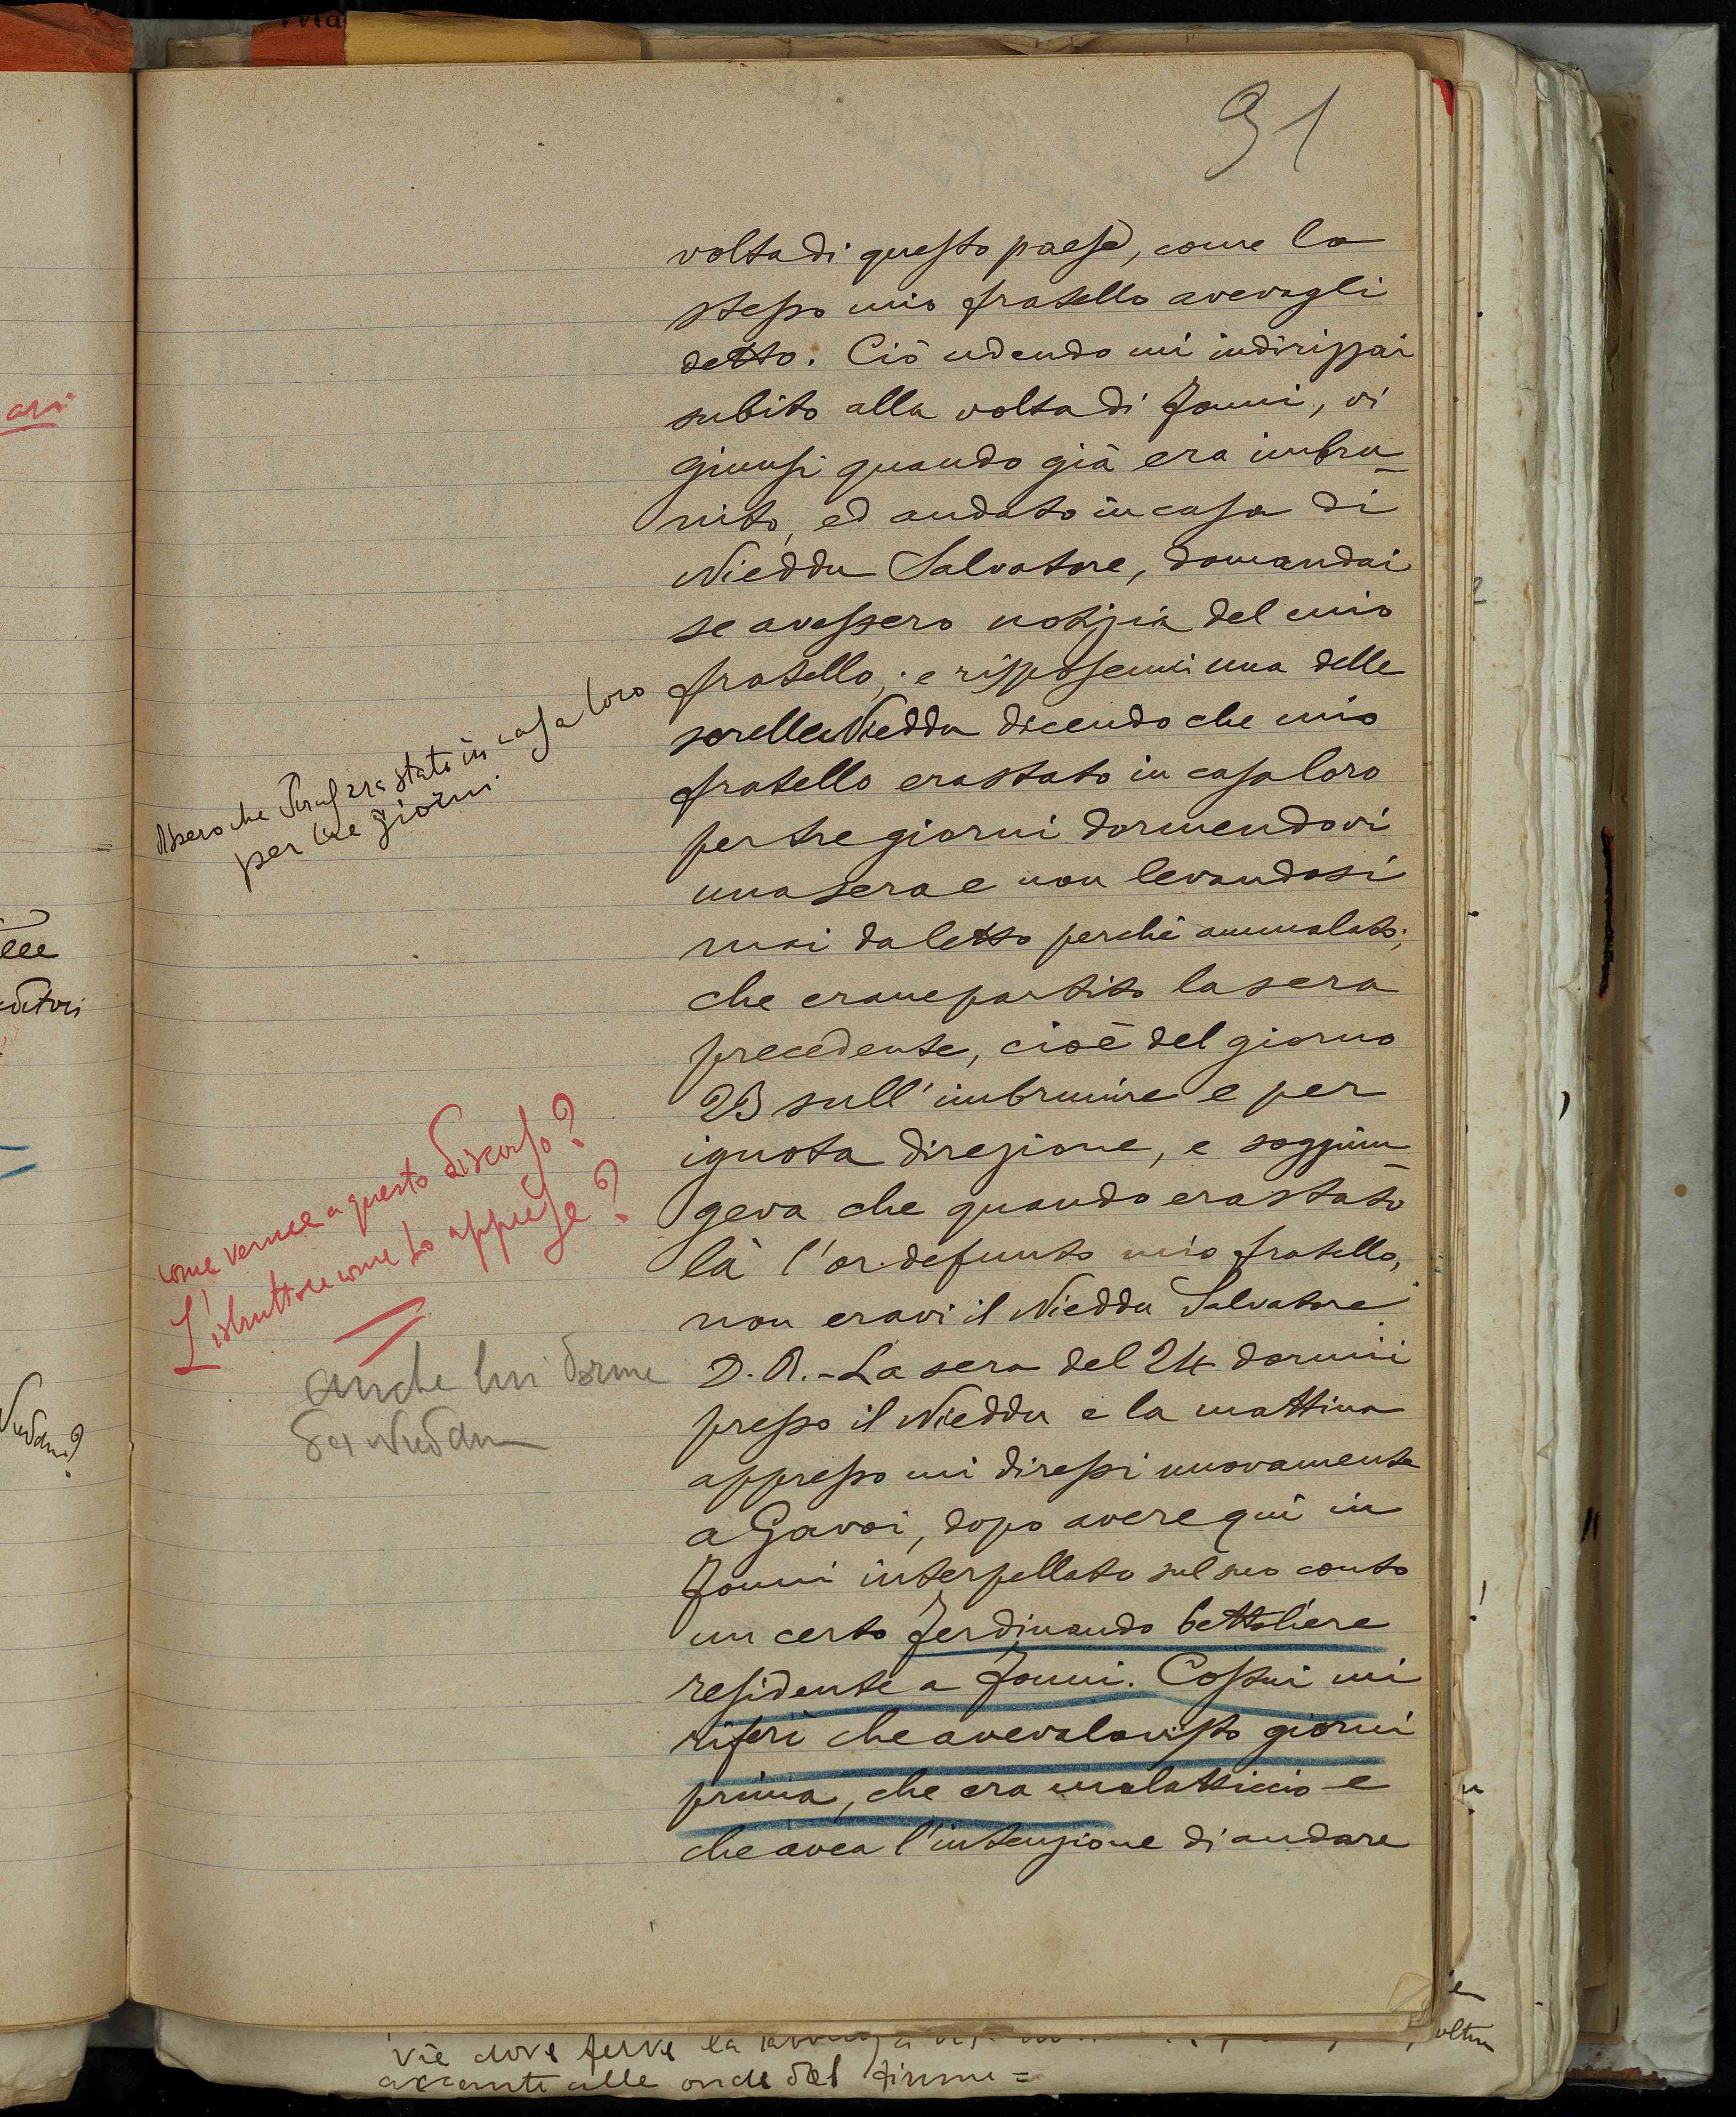 91
volta di questo paese, come lo
stesso mio fratello avevagli
detto. Ciò udendo mi indirizzai
subito alla volta di Fonni, vi
giunsi quando già era imbru-
nito, ed andato in casa di
Nieddu Salvatore, domandai
se avessero notizia del mio
fratello; e risposemi una delle
sorelle Nieddu dicendo che mio
fratello era stato in casa loro
per tre giorni dormendovi
una sera e non levandosi
mai da letto perchè ammalato;
che erane partito la sera
precedente, cioè del giorno
23 sull'imbrunire e per
ignota direzione, e soggiun-
geva che quando era stato
là l'or defunto mio fratello,
non eravi il Nieddu Salvatore
D.R. - La sera del 24 dormii
presso il Nieddu e la mattina
appresso mi diressi nuovamente
a Gavoi, dopo avere quì in
Fonni interpellato sul suo conto
un certo Ferdinando bettoliere
residente a Fonni. Costui mi
riferì che avevalo visto giorni
prima, che era malatticcio e
che avea l'intenzione di andare
che era stato in casa loro
per tre giorni
come venne a questo discorso?
L'istruttore come lo apprese?
anche lui dorme
dai Nieddu
ari
Nieddu?
vie dove ferve la
accanto alle onde del fiume =